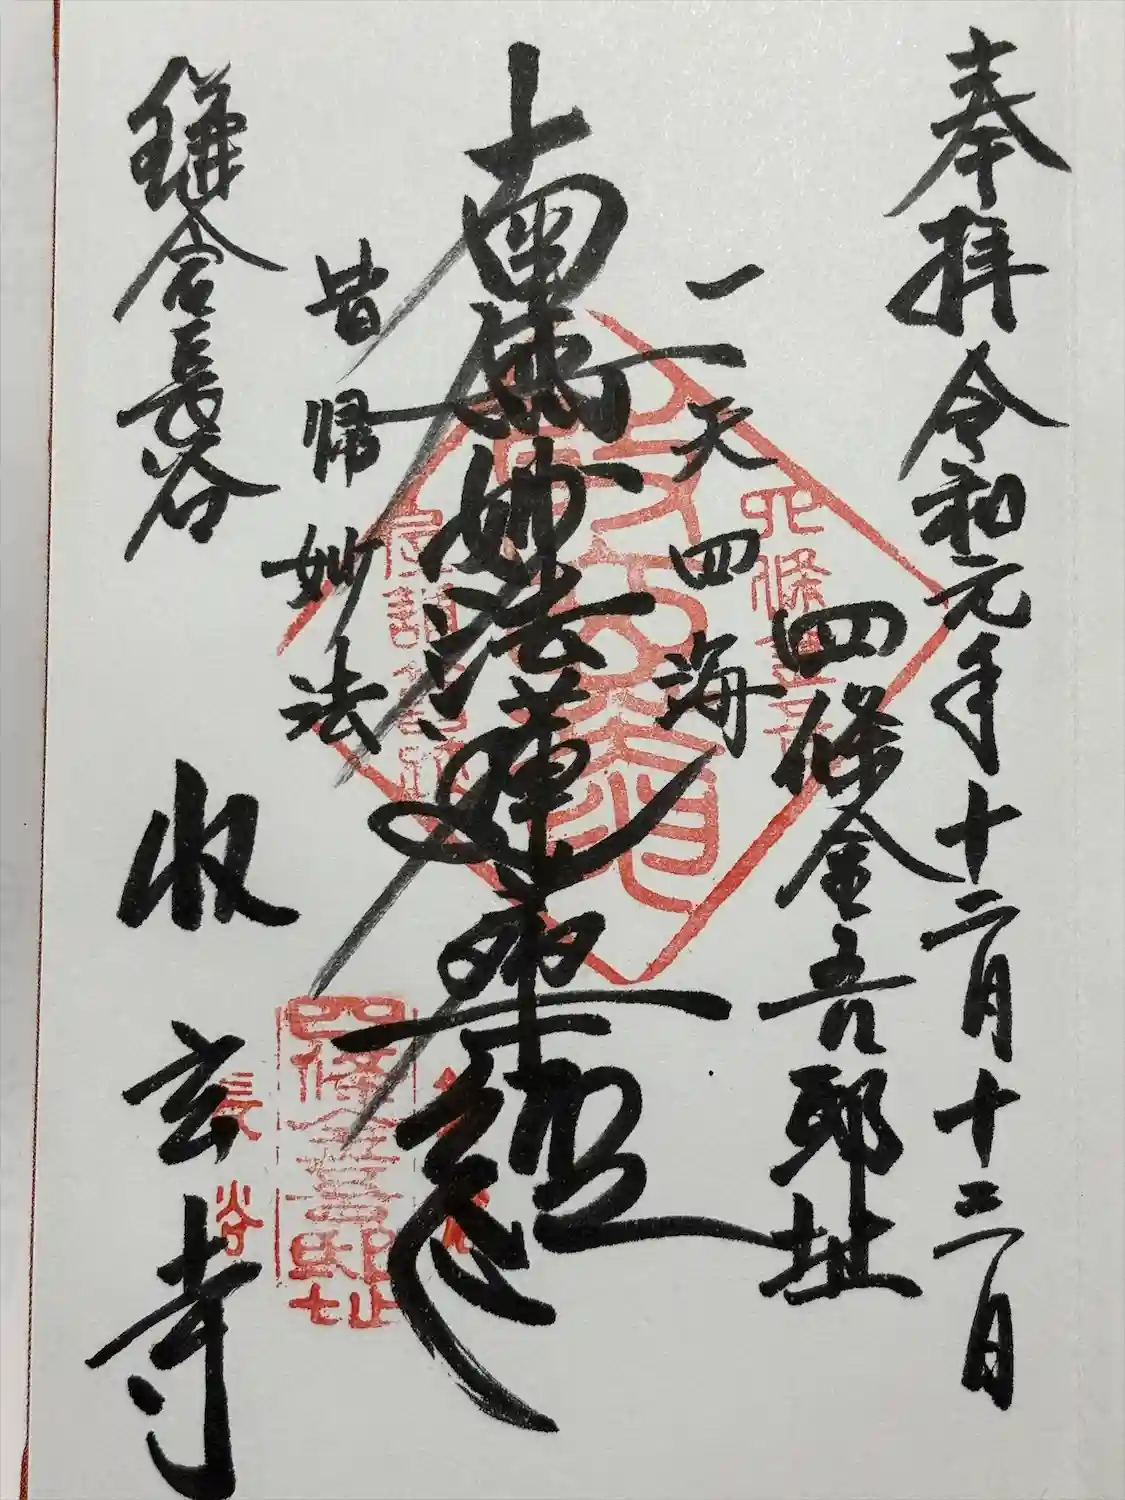 奉拝 令和元年十二月十三日
四條金吾邸址
一天四海
南無妙法蓮華経
皆帰妙法
鎌倉長谷
收玄寺
四條金吾邸址
長谷